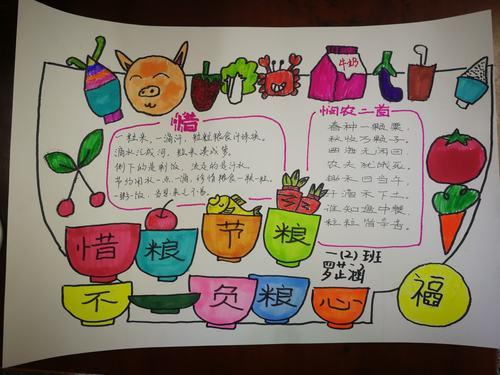 牛奶
惜
一粒米,一滴汗,粒粒粮食汗珠换。
滴水汇成河,粒米凑成箩。
倒下的是剩饭,流走的是汗水。
节约用水一点一滴,珍惜粮食一粒一粒。
一粥一饭,当思来之不易。
悯农二首
春种一颗粟,
秋收万颗子。
四海无闲田,
农夫犹饿死。
锄禾日当午,
汗滴禾下土。
谁知盘中餐,
粒粒皆辛苦。
惜粮节粮
一(2)班
不负粮心
福